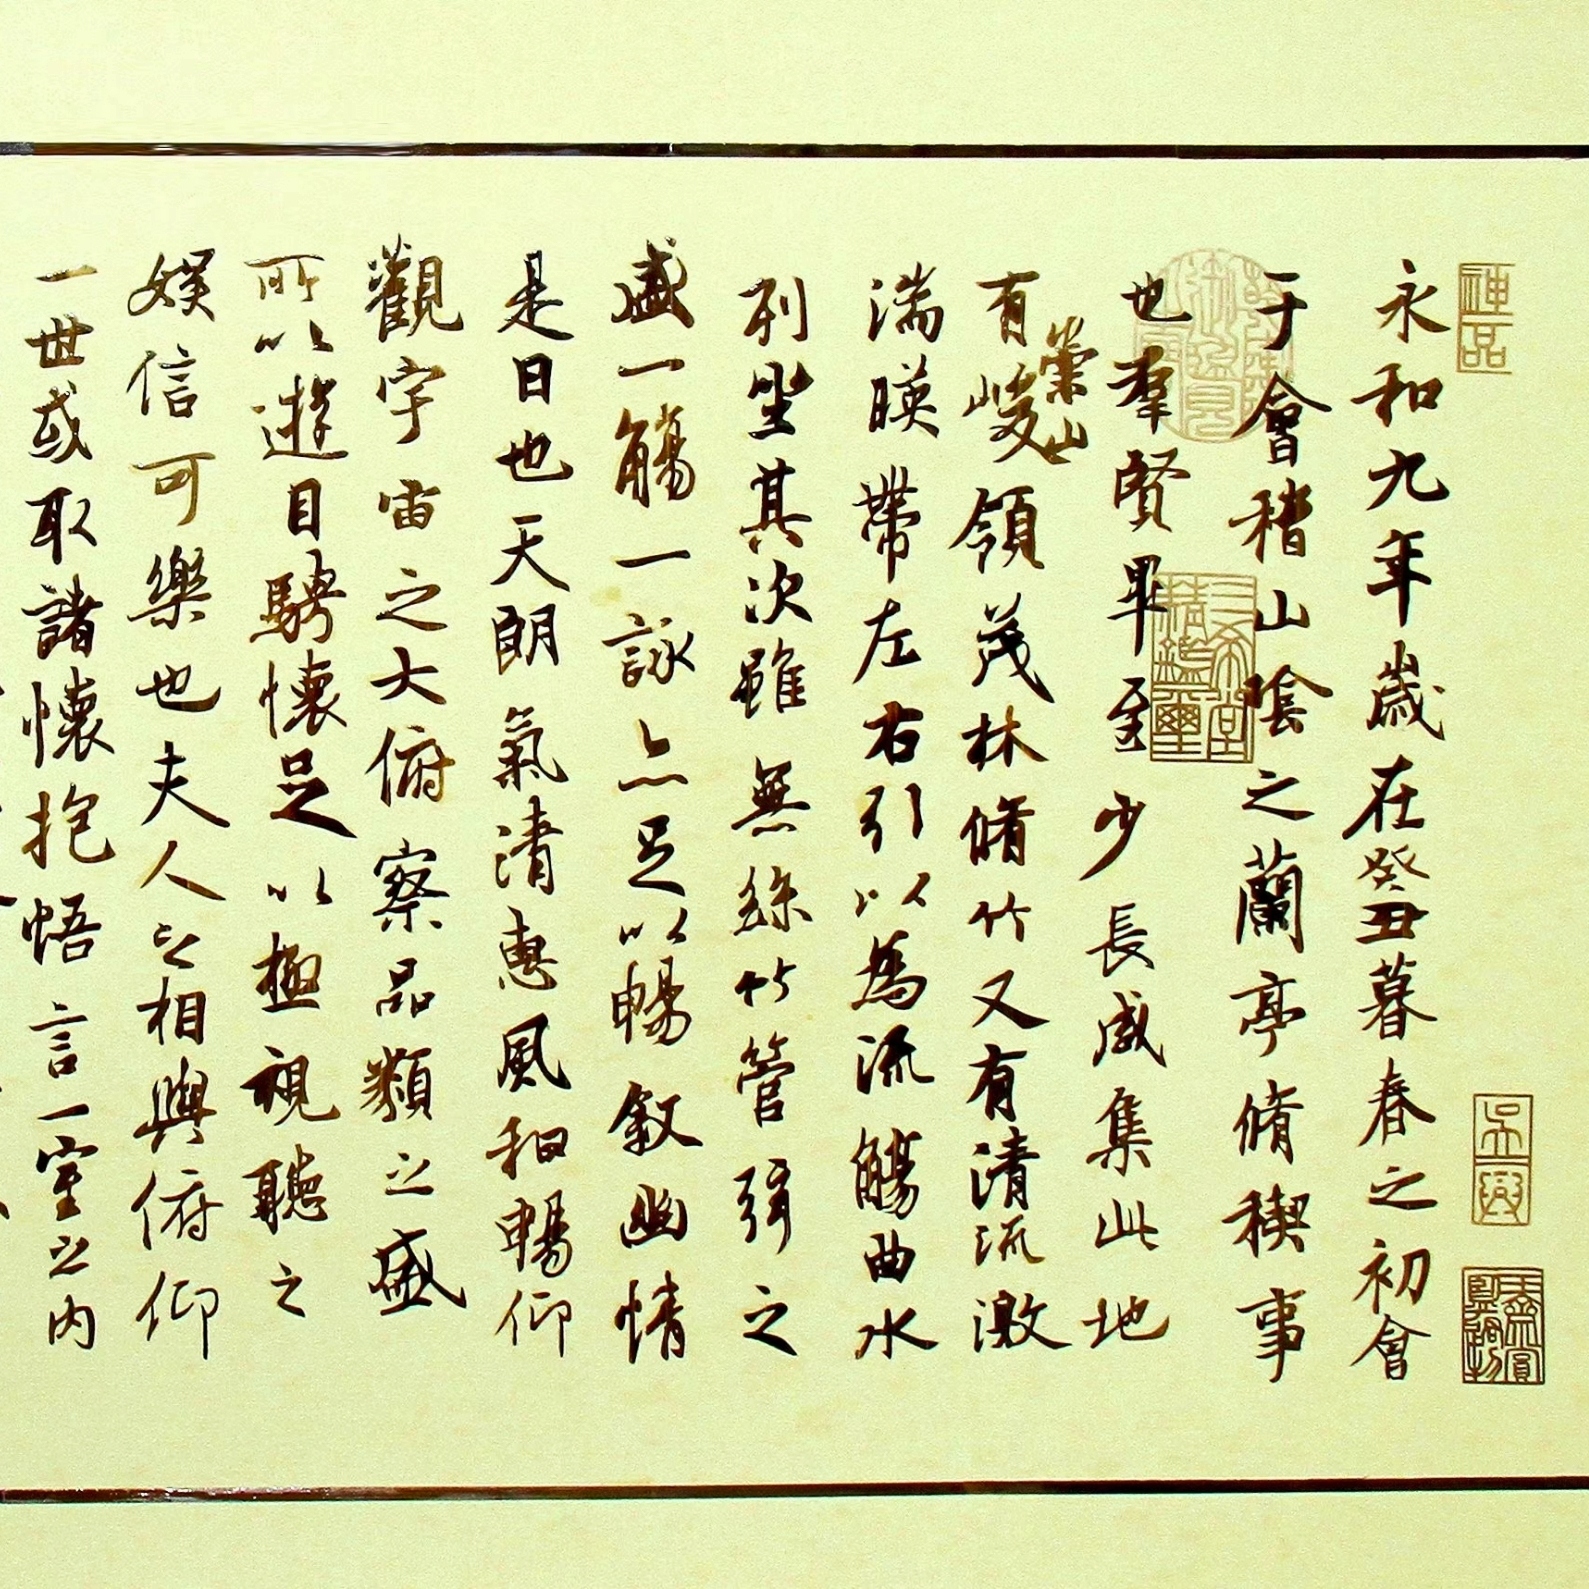 永和九年歲在癸丑暮春之初會
于會稽山陰之蘭亭脩稧事
也羣賢畢至少長咸集此地
有崇山峻領茂林脩竹又有清流激
湍暎帶左右引以為流觴曲水
列坐其次雖無絲竹管弦之
盛一觴一詠亦足以暢敘幽情
是日也天朗氣清惠風和暢仰
觀宇宙之大俯察品類之盛
所以遊目騁懷足以極視聽之
娛信可樂也夫人之相與俯仰
一世或取諸懷抱悟言一室之內
神品
三希堂精鑑璽